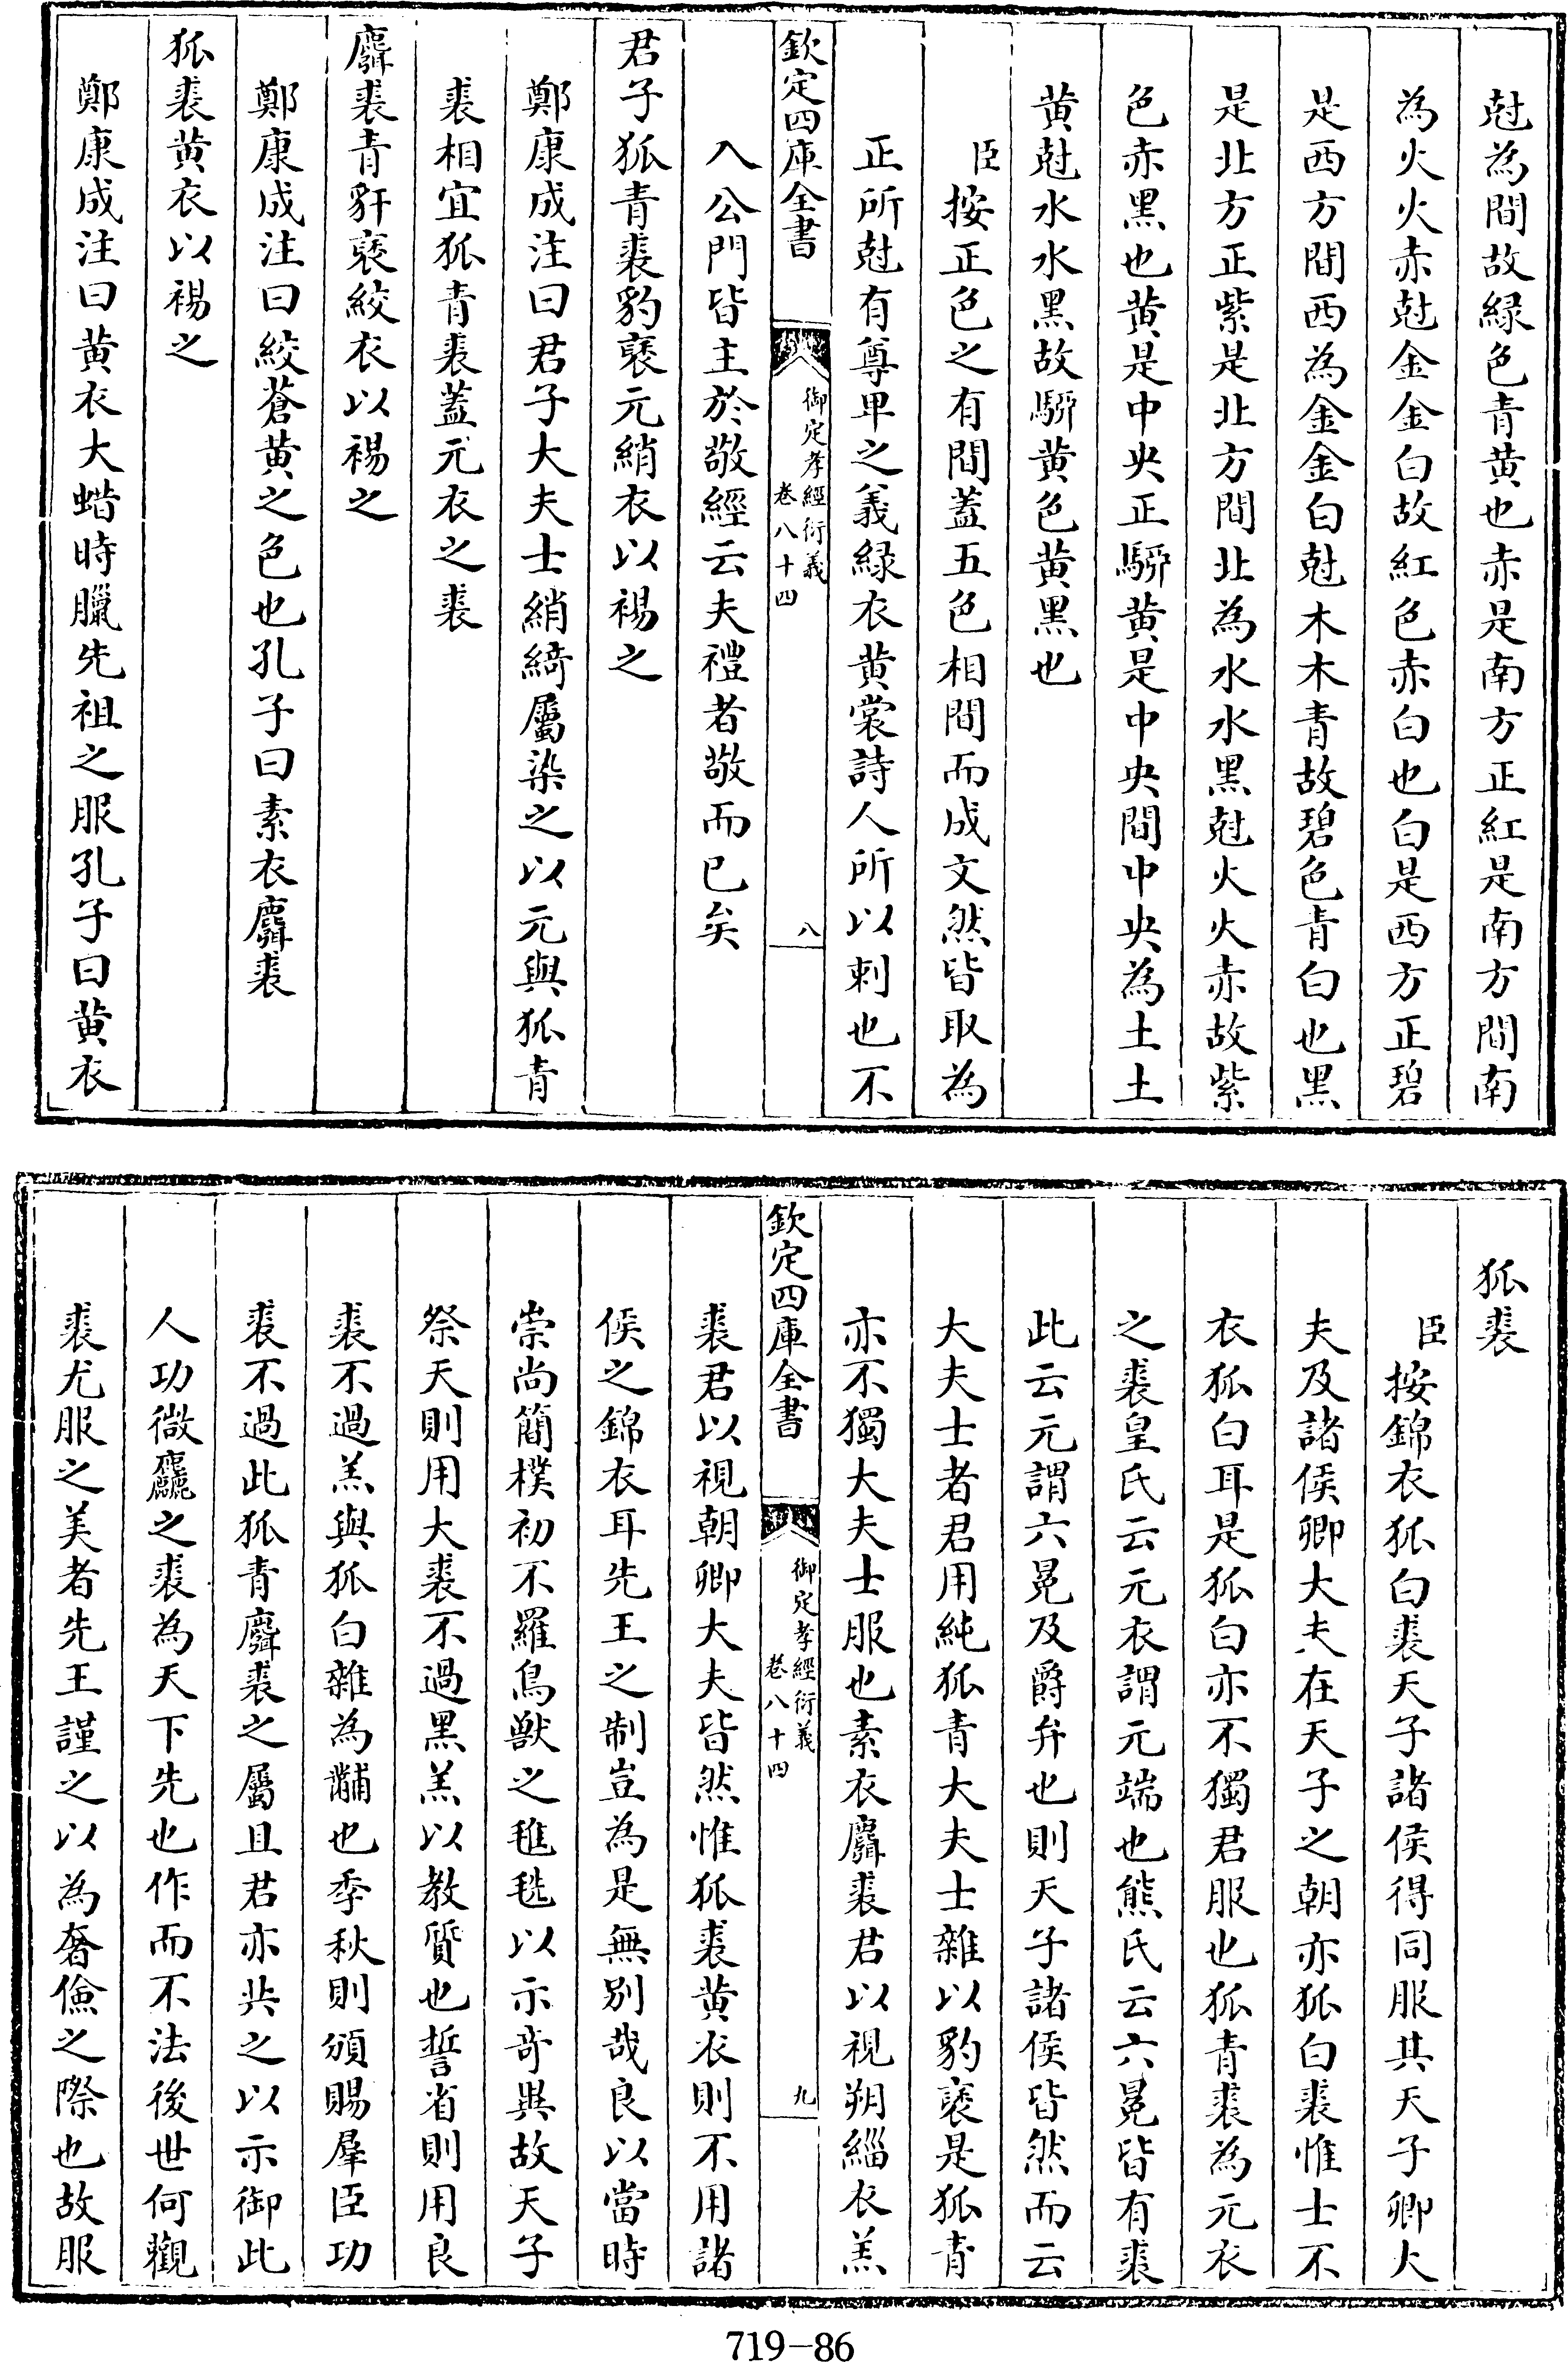 尅為間故緑色青黄也赤是南方正紅是南方間南
為火火赤尅金金白故紅色赤白也白是西方正碧
是西方間西為金金白尅木木青故碧色青白也黑
是北方正紫是北方間北為水水黑尅火火赤故紫
色赤黑也黄是中央正騮黄是中央間中央為土土
黄尅水水黑故騮黄色黄黑也
臣按正色之有間蓋五色相間而成文然皆取為
正所尅有尊卑之義緑衣黄裳詩人所以刺也不
欽定四庫全書
御定孝經衍義
卷八十四
八
入公門皆主於敬經云夫禮者敬而已矣
君子狐青裘豹褎元綃衣以裼之
鄭康成注曰君子大夫士綃綺屬染之以元與狐青
裘相宜狐青裘蓋元衣之裘
麛裘青豻褎絞衣以裼之
鄭康成注曰絞蒼黄之色也孔子曰素衣麛裘
狐裘黄衣以裼之
鄭康成注曰黄衣大蜡時臘先祖之服孔子曰黄衣
狐裘
臣按錦衣狐白裘天子諸侯得同服其天子卿大
夫及諸侯卿大夫在天子之朝亦狐白裘惟士不
衣狐白耳是狐白亦不獨君服也狐青裘為元衣
之裘皇氏云元衣謂元端也熊氏云六冕皆有裘
此云元謂六冕及爵弁也則天子諸侯皆然而云
大夫士者君用純狐青大夫士雜以豹褎是狐青
亦不獨大夫士服也素衣麛裘君以視朔緇衣羔
欽定四庫全書
御定孝經衍義
卷八十四
九
裘君以視朝卿大夫皆然惟狐裘黄衣則不用諸
侯之錦衣耳先王之制豈為是無别哉良以當時
崇尚簡樸初不羅鳥獸之毴毨以示奇異故天子
祭天則用大裘不過黑羔以教質也誓省則用良
裘不過羔與狐白雜為黼也季秋則頒賜羣臣功
裘不過此狐青麛裘之屬且君亦共之以示御此
人功微麤之裘為天下先也作而不法後世何觀
裘尤服之美者先王謹之以為奢儉之際也故服
719-86